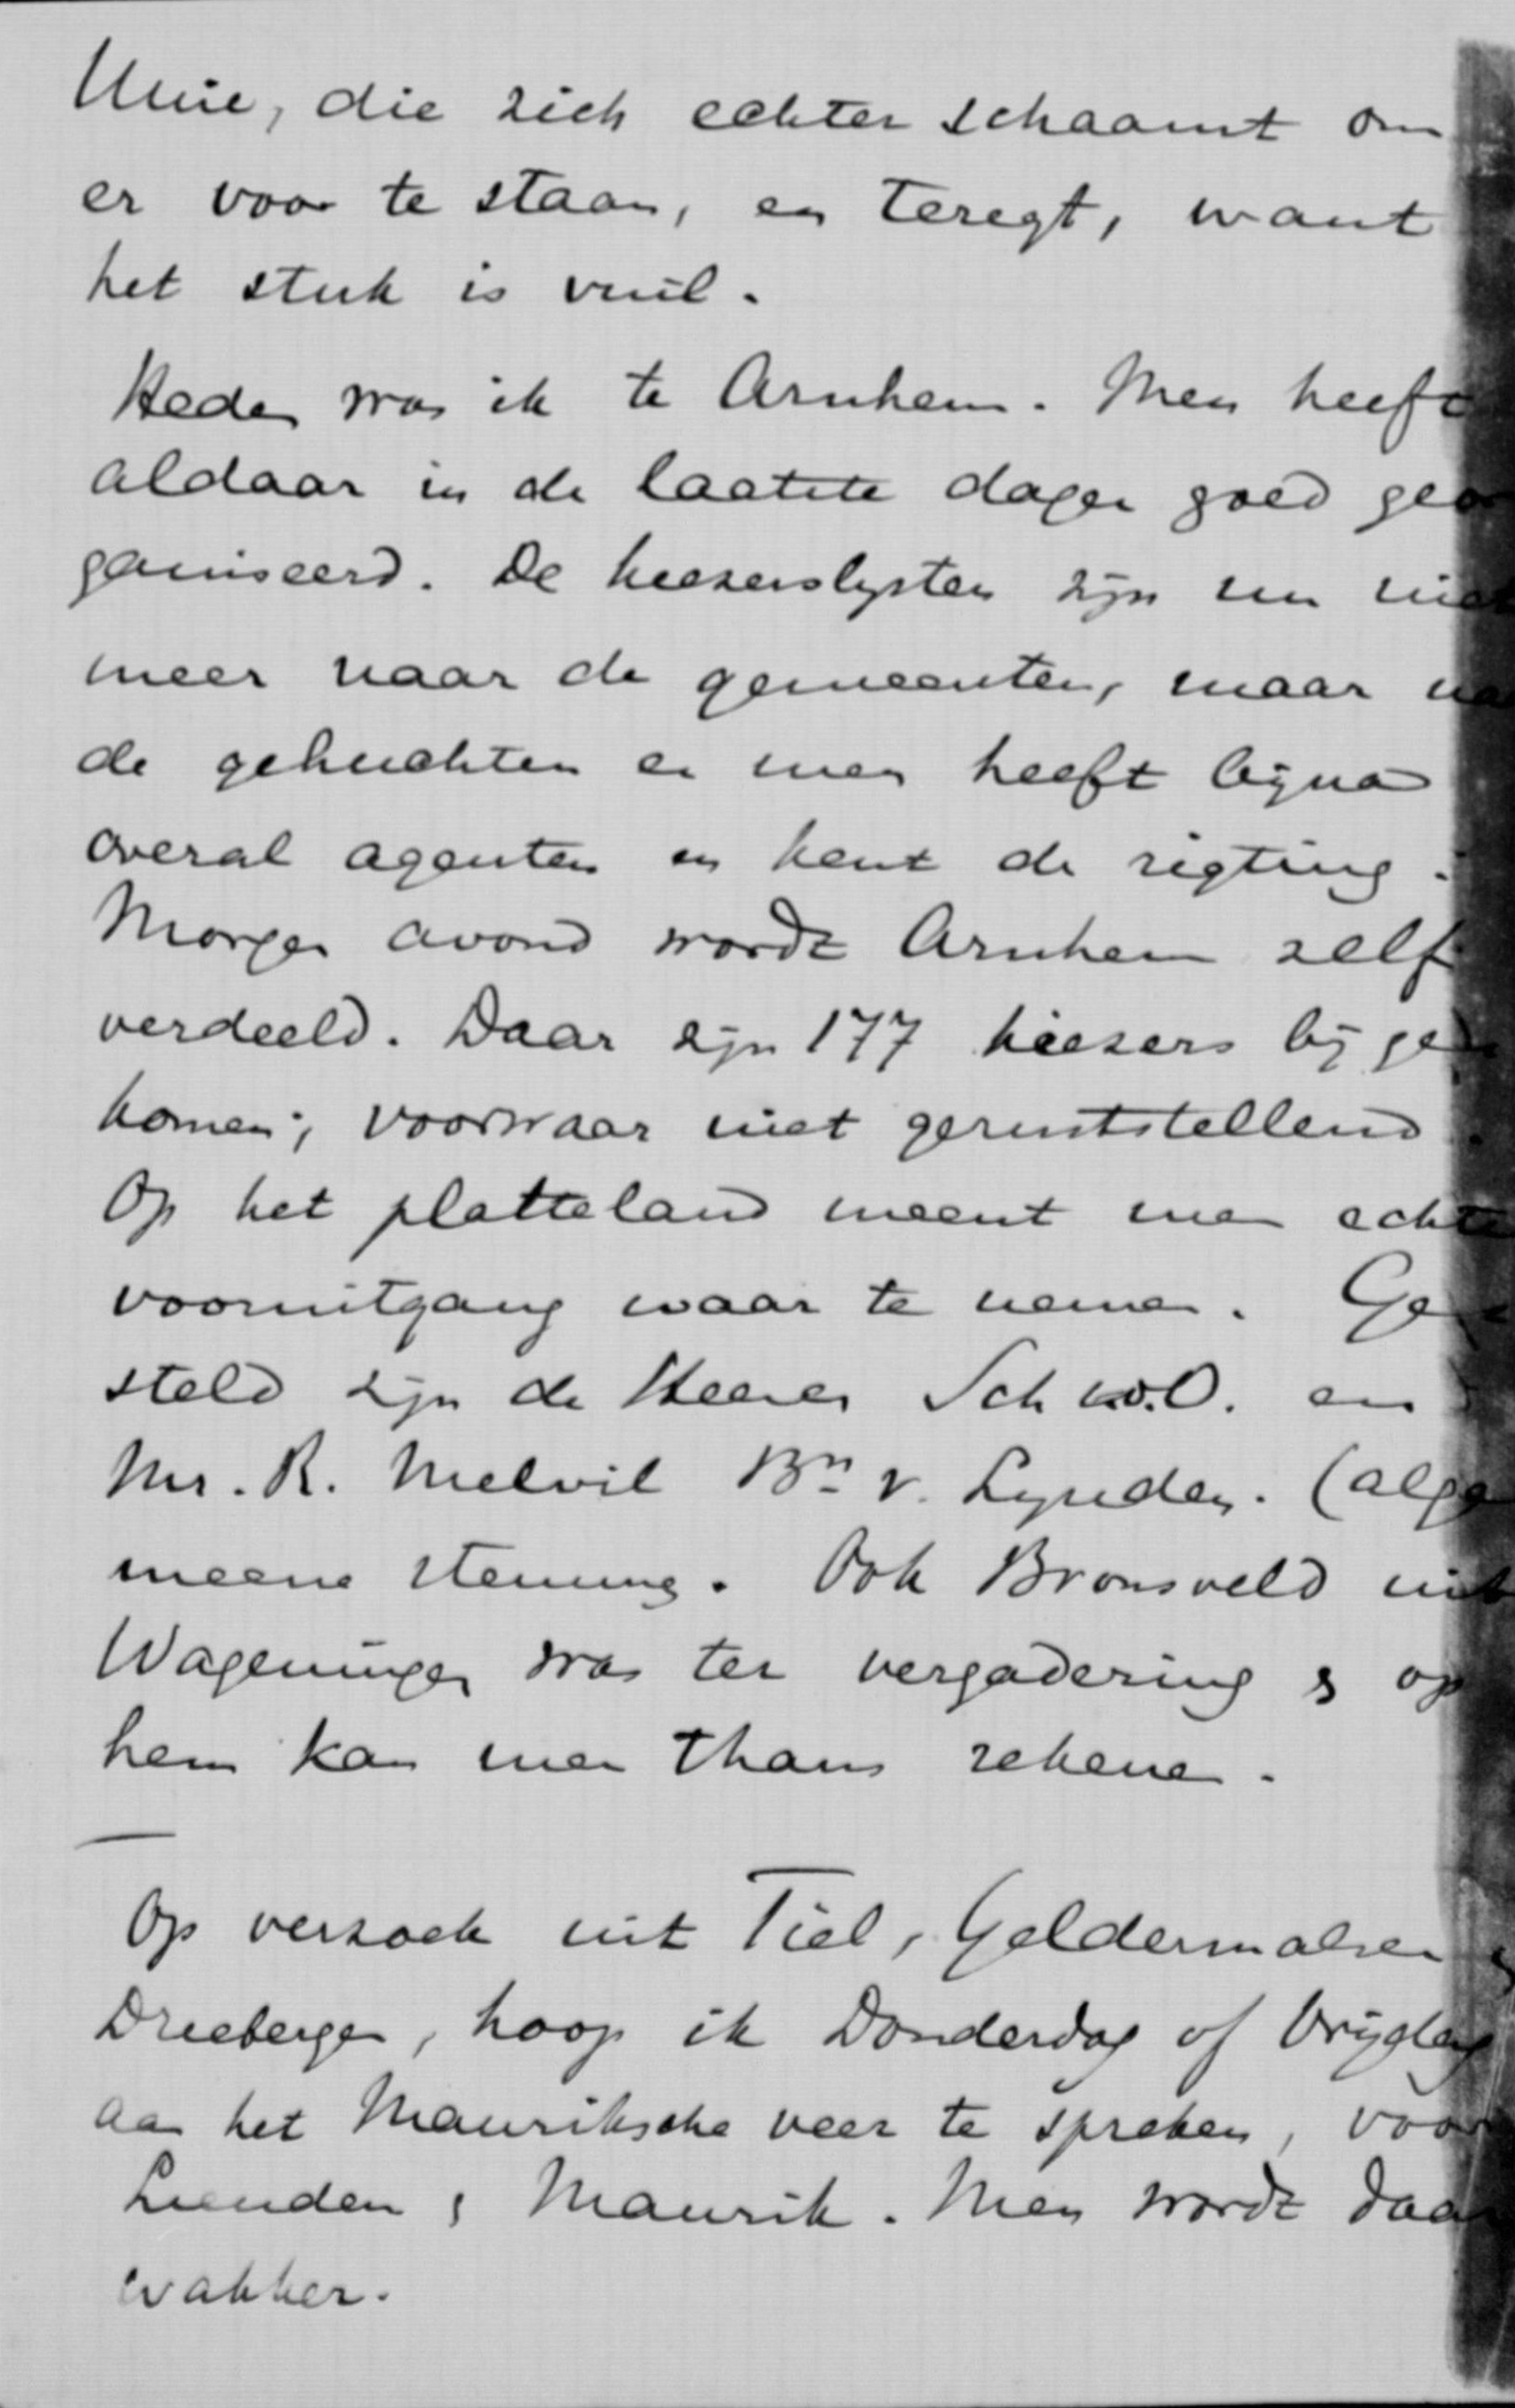 Unie, die zich echter schaamt om
er voor te staan, en teregt, want
het stuk is vuil.
Heden was ik te Arnhem. Men heeft
aldaar in de laatste dagen goed geor
ganiseerd. De kiezerslysten zijn nu niet
meer naar de gemeenten, maar na
de gehuchten en men heeft bijna
overal agenten en kent de rigting.
Morgen avond wordt Arnhem zelf
verdeeld. Daar zijn 177 kiezers bij ge
komen; voorwaar niet geruststellend.
Op het platteland meent men echte
vooruitgang waar te nemen. Ge
steld zijn de Heeren Sch v.O. en
Mr. R. Melvil Bn v. Lynden. (alge
meene stemming. Ook Bronsveld uit
Wageningen was ter vergadering & op
hem kan men thans rekenen.
Op verzoek uit Tiel, Geldermalsen
Driebergen, hoop ik Donderdag of Vrijdag
aan het Mauriksche veer te spreken, voor
Lienden & Maurik. Men wordt daar
wakker.